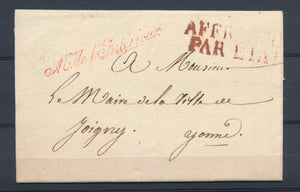 AFFR
PAR ETAT
Mre de l'Intérieur
A Monsieur
Le Maire de la Ville de
Joigny
yonne